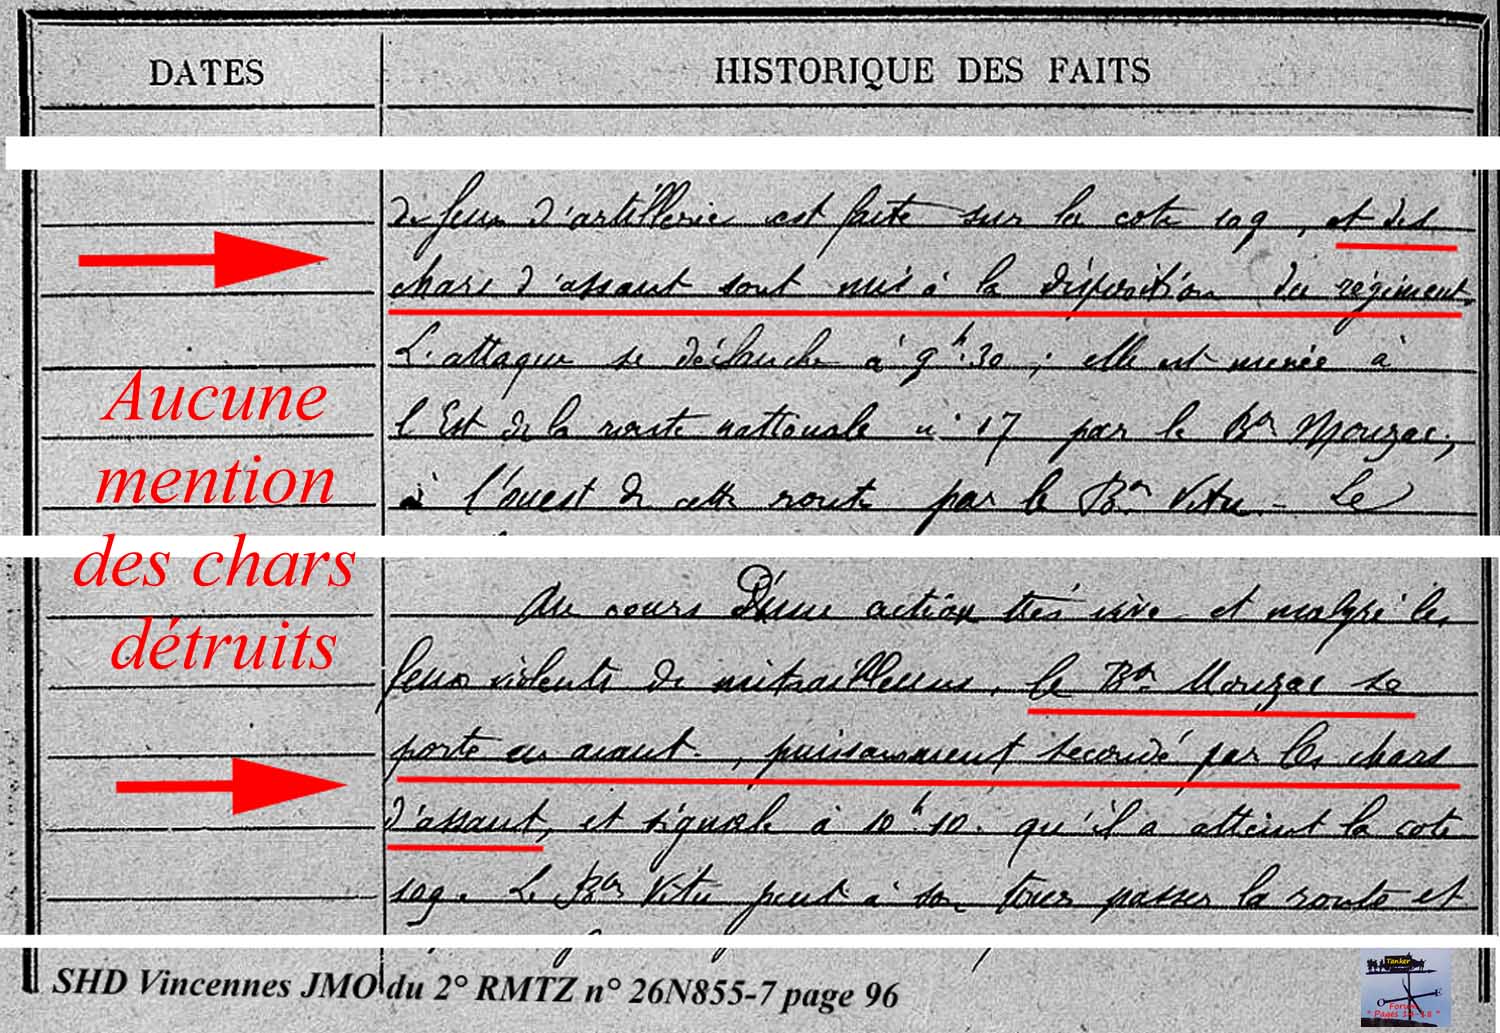 DATES
HISTORIQUE DES FAITS
de feux d'artillerie est faite sur la cote 109, et des
chars d'assaut sont mis à la disposition du régiment.
L'attaque se déclenche à 9h.30 ; elle est menée à
l'Est de la route nationale n° 17 par le Bon Mouzac,
à l'ouest de cette route par le Bon Vitu. - Le
Aucune
mention
des chars
détruits
Au cours D'une action très vive et malgré les
feux violents de mitrailleuses, le Bon Mouzac se
porte en avant, puissamment secondé par les chars
d'assaut, et signale à 10h.10. qu'il a atteint la cote
109. Le Bon Vitu peut à son tour passer la route et
SHD Vincennes JMO du 2° RMTZ n° 26N855-7 page 96
Tanker
O E
Forum
" Pages 14-18 "